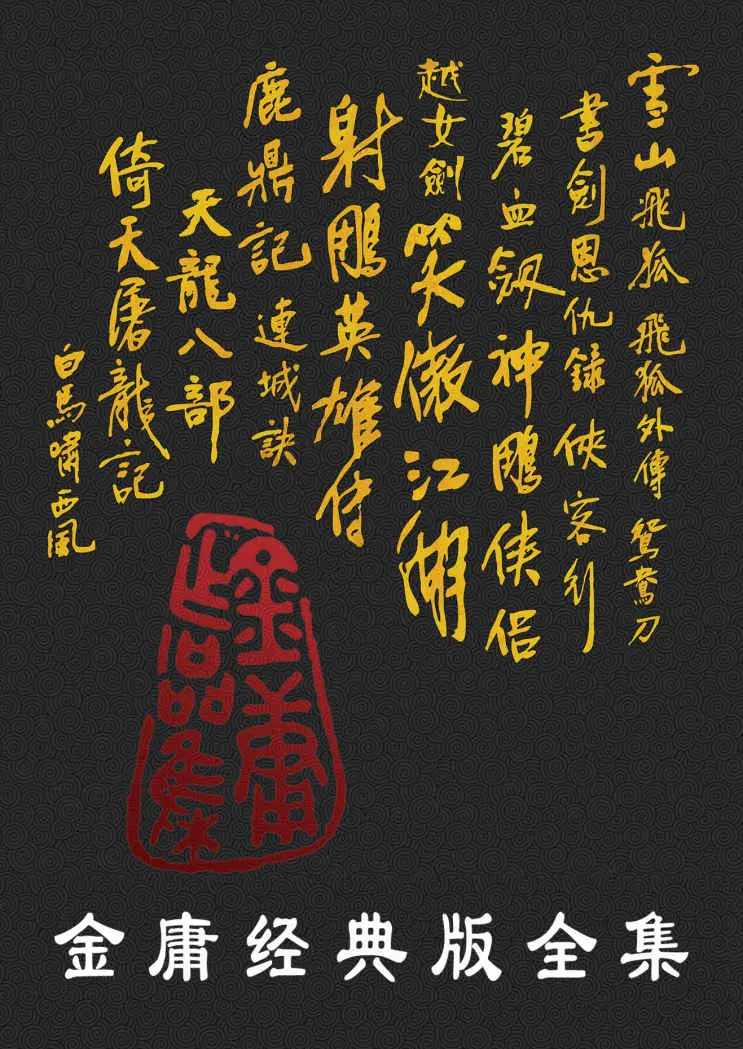 雪山飛狐 飛狐外傳 鴛鴦刀
書劍恩仇録 俠客行
碧血劔 神鵰侠侣
越女劍 笑傲江湖
射鵰英雄传
鹿鼎記 連城訣
天龍八部
倚天屠龍記
白馬嘯西風
金庸
作品集
金庸经典版全集